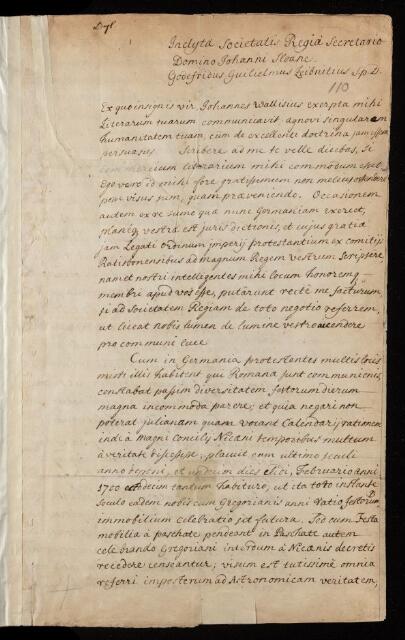 Inclytæ Societatis Regiæ Secretario
Domino Johanni Sloane
Godefridus Guilielmus Leibnitius S. p. D.
110
Ex quo insignis vir Johannes Wallisius exerpta mihi
Literarum tuarum communicavit agnovi singularem
humanitatem tuam, cum de excellente doctrina jam essem
persuasus. Scribere ad me te velle dicebas, si
commercium literarium mihi commodum esset
Ego vero id mihi fore gratissimum non melius ostendere
posse visus sum, quam præveniendo. Occasionem
autem ex re sumo quæ nunc Germaniam exercet,
planeq vestræ est juris dictionis, et cujus gratia
jam Legati ordinum imperij protestantium ex comitijs
Ratisbonensibus ad magnum Regem vestrum scripsere,
nam et nostri intelligentes mihi locum honoremq
membri apud vos esse, putarunt recte me facturum,
si ad societatem Regiam de toto negotio referrem,
ut liceat nobis lumen de lumine vestro accendere
pro communi luce
Cum in Germania protestentes multis locis
misti illis habitent qui Romanæ sunt communionis,
constabat passim diversitatem festorum dierum
magna incommoda parere; et quia negari non
poterat julianam quam vocant Calendarij rationem
inde à magni Concilij Nicæni temporibus multum
à veritate discessisse, placuit cum ultimo seculi
anno, et undecim dies Februario anni
1700 tantum habituro, ut ita toto instante
seculo eadem nobis cum Gregorianis anni ratio festorumq
immobilium celebratio sit futura. Sed cum Festa
mobilia à paschate pendeant in Paschate autem
celebrando Gregoriani interdum à Nicænis decretis
recedere censeantur; visum est tutissimè omnia
referri imposterum ad Astronomicam veritatem,